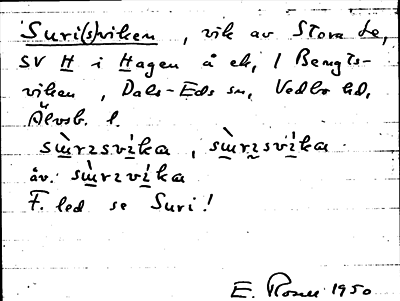 Suri(s)viken, vik av Stora Le,
SV H i Hagen å ek, / Bengts-
viken, Dals-Eds sn, Vedbo hd,
Älvsb. l.
sẁrɪsvɪ́ka, sẁrɪsvɪ́ka
äv. sẁrɪvɪ́ka
F. led se Suri!
E. Rosell 1950